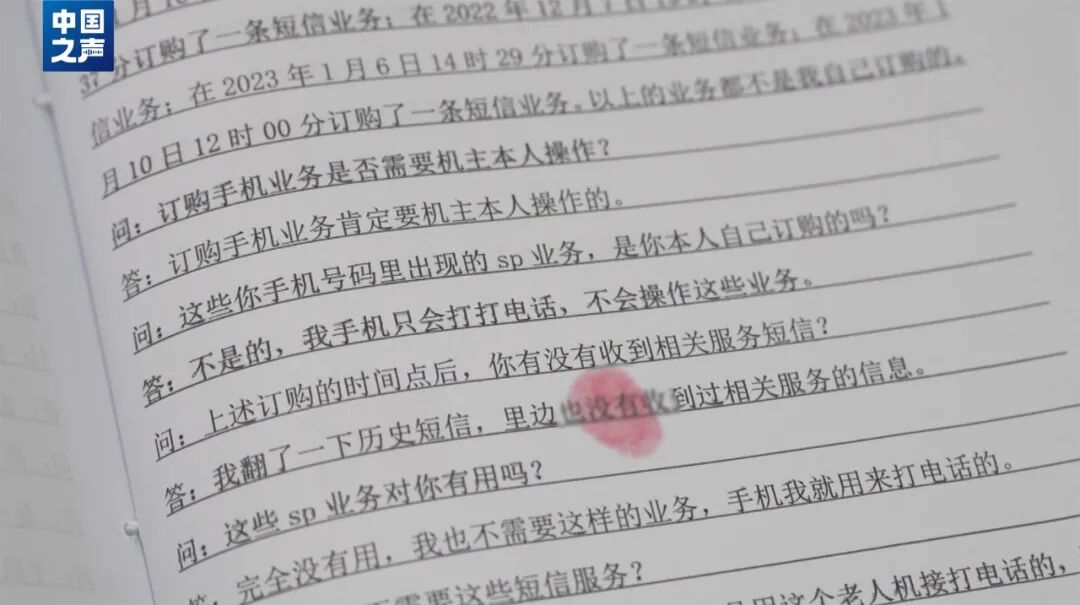 中国之声
37分订购了一条短信业务；在2022年12月7日
信业务；在2023年1月6日14时29分订购了一条短信业务；在2023年1
月10日12时00分订购了一条短信业务。以上的业务都不是我自己订购的。
问：订购手机业务是否需要机主本人操作？
答：订购手机业务肯定要机主本人操作的。
问：这些你手机号码里出现的sp业务，是你本人自己订购的吗？
答：不是的，我手机只会打打电话，不会操作这些业务。
问：上述订购的时间点后，你有没有收到相关服务短信？
答：我翻了一下历史短信，里边也没有收到过相关服务的信息。
问：这些sp业务对你有用吗？
答：完全没有用，我也不需要这样的业务，手机我就用来打电话的。
需要这些短信服务？
用这个老人机接打电话的，